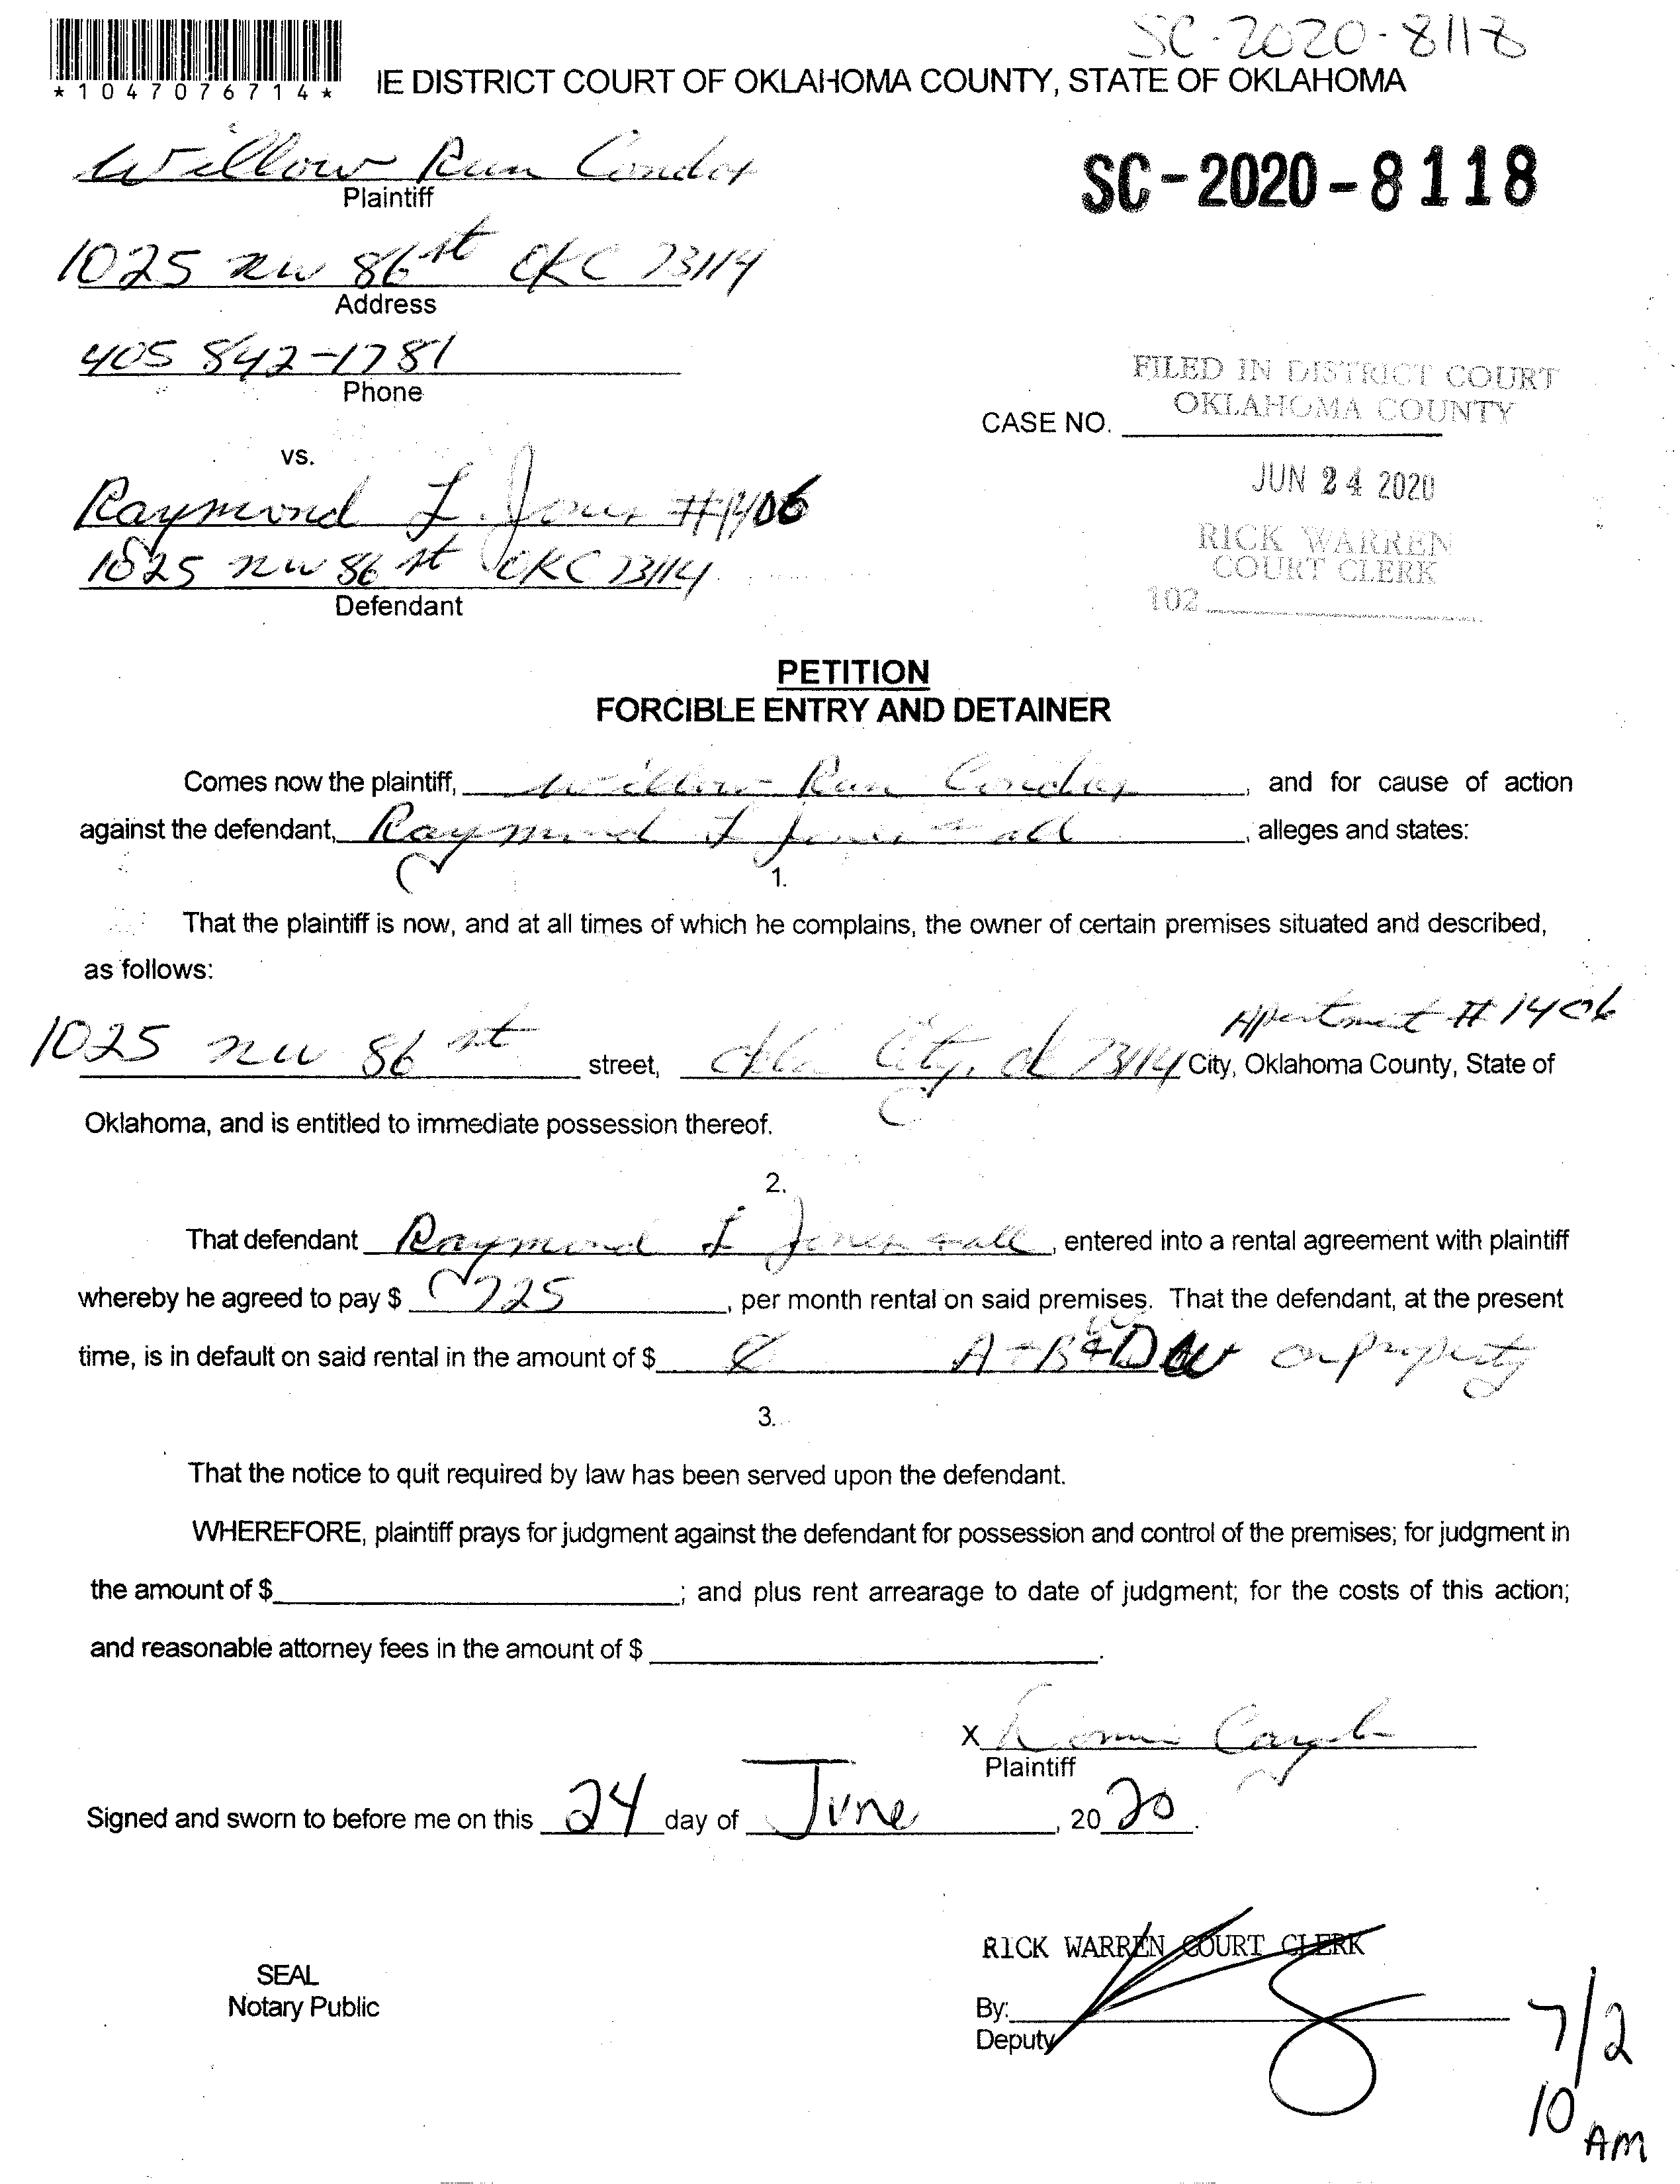 SC-2020-8118
*1047076714*
IE DISTRICT COURT OF OKLAHOMA COUNTY, STATE OF OKLAHOMA
Willow Run Condos
Plaintiff
SC-2020-8118
1025 NW 86th st OKC 73114
Address
405 842-1781
Phone
FILED IN DISTRICT COURT
OKLAHOMA COUNTY
CASE NO.
JUN 24 2020
RICK WARREN
COURT CLERK
102
vs.
Raymond L. Jones #1406
1025 NW 86 st OKC 73114
Defendant
PETITION
FORCIBLE ENTRY AND DETAINER
Comes now the plaintiff, Willow Run Condos, and for cause of action
against the defendant, Raymond L Jones all, alleges and states:
1.
That the plaintiff is now, and at all times of which he complains, the owner of certain premises situated and described,
as follows:
Apartment #1406
1025 NW 86 st street, Okla City, ok 73114 City, Oklahoma County, State of
Oklahoma, and is entitled to immediate possession thereof.
2.
That defendant Raymond L Jones all, entered into a rental agreement with plaintiff
whereby he agreed to pay $ 725, per month rental on said premises. That the defendant, at the present
time, is in default on said rental in the amount of $ A+B & D on property
3.
That the notice to quit required by law has been served upon the defendant.
WHEREFORE, plaintiff prays for judgment against the defendant for possession and control of the premises; for judgment in
the amount of $ ; and plus rent arrearage to date of judgment; for the costs of this action;
and reasonable attorney fees in the amount of $ .
X
Plaintiff
Signed and sworn to before me on this 24 day of June, 20 20.
RICK WARREN COURT CLERK
SEAL
Notary Public
By:
Deputy
7/2
10 AM